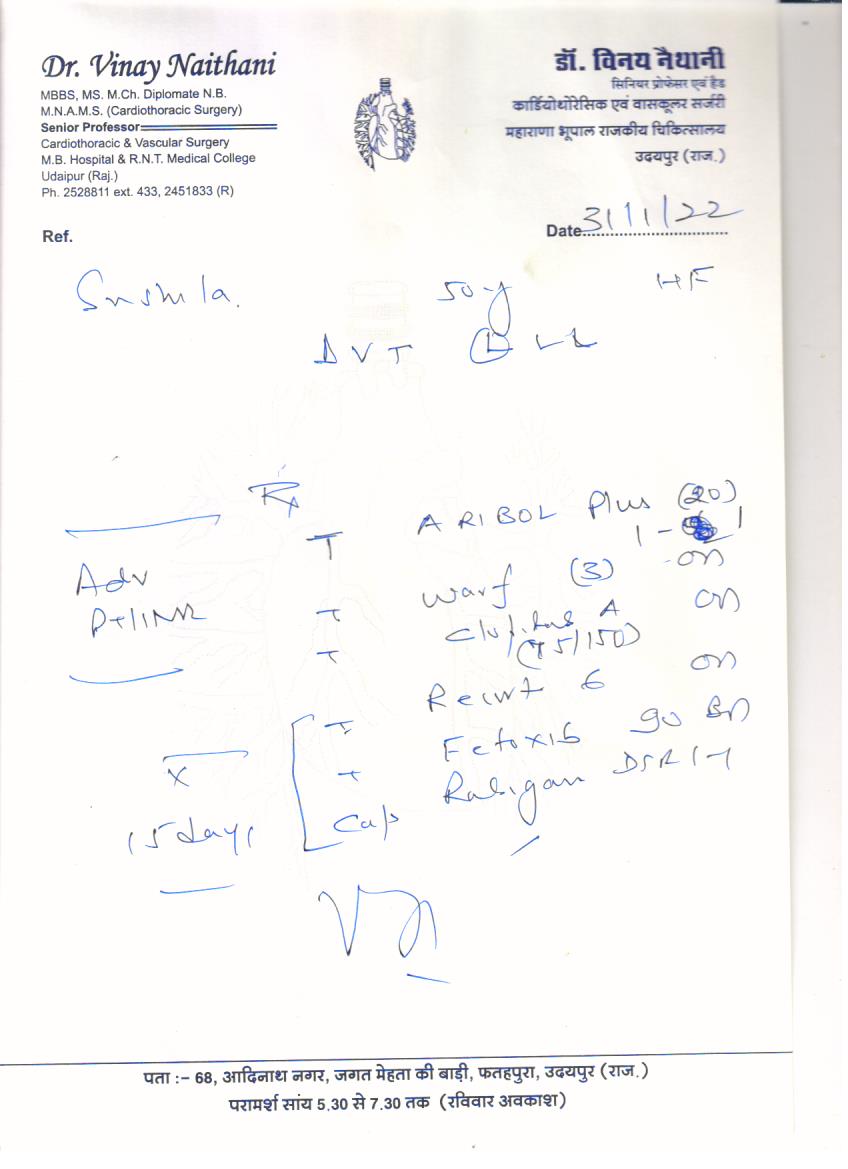 Dr. Vinay Naithani
MBBS, MS. M.Ch. Diplomate N.B.
M.N.A.M.S. (Cardiothoracic Surgery)
Senior Professor
Cardiothoracic & Vascular Surgery
M.B. Hospital & R.N.T. Medical College
Udaipur (Raj.)
Ph. 2528811 ext. 433, 2451833 (R)
डॉ. विनय नैथानी
सिनियर प्रोफेसर एवं हैड
कार्डियोथोरेसिक एवं वासकूलर सर्जरी
महाराणा भूपाल राजकीय चिकित्सालय
उदयपुर (राज.)
Date 31/1/22
Ref.
Sushila. 50-y HF
DVT (L) LL
Rx
T ARIBOL Plus (20)
1-1
Adv
Pt/INR
Warf (3) on
T A on
T (75/150)
6 on
T 90
T DSR 1-1
Cap
x
15 days
पता :– 68, आदिनाथ नगर, जगत मेहता की बाड़ी, फतहपुरा, उदयपुर (राज.)
परामर्श सांय 5.30 से 7.30 तक (रविवार अवकाश)